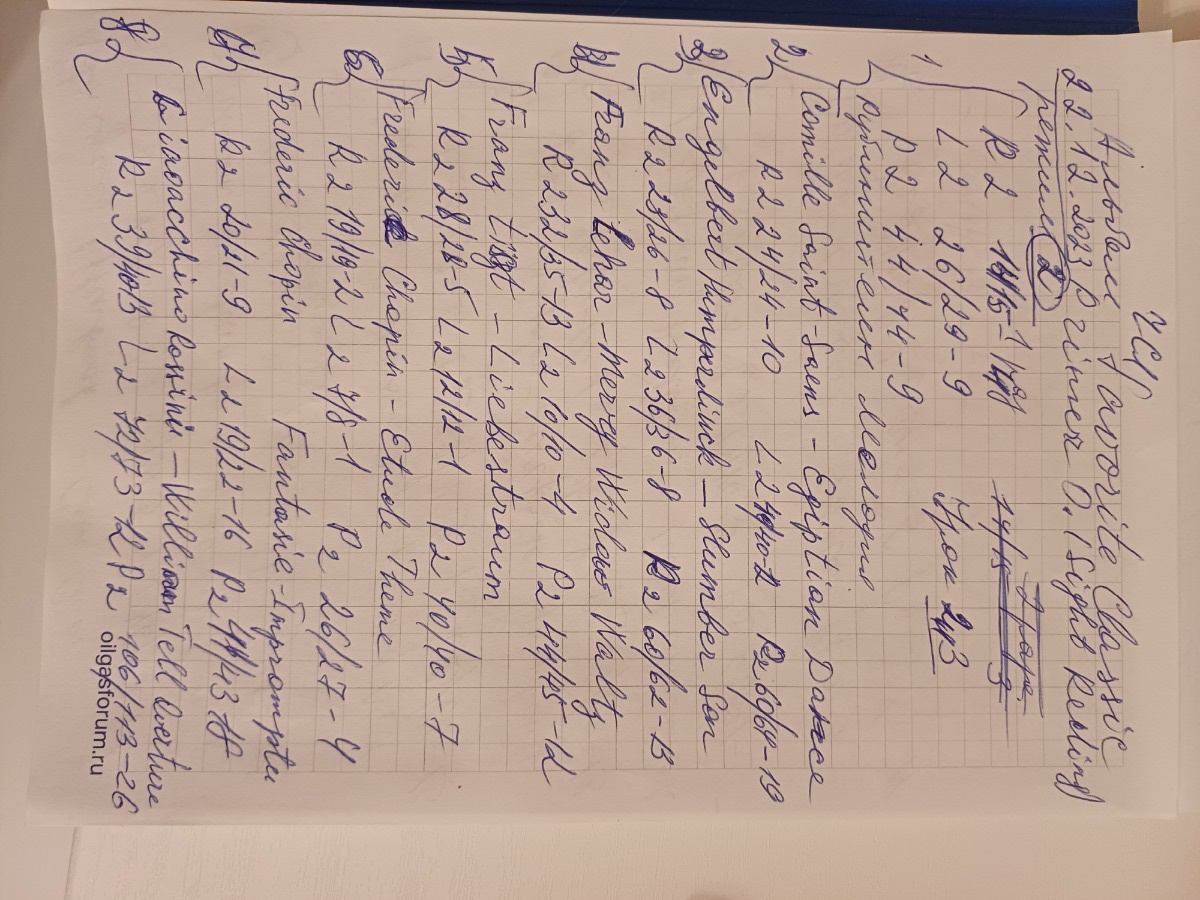 Альбом Favorite Classic
22.12.2023 р
режим 2
1) R2 14/15-1
L2 26/29-9
P2 44/44-9
Урок 2 и 3
Рубинштейн Мелодия
2) Camille Saint-Saens - Egiption Dance
R2 24/24-10 L2 40/40-2 P2 60/64-19
3) Engelbert Humperdinck - Slumber Son
R2 25/26-8 L2 36/36-8 P2 60/62-13
4) Franz Lehar - Merry Widow Walty
R2 32/35-13 L2 10/10-4 P2 44/45-12
Franz Liszt - Liebestraum
5) R2 28/28-5 L2 12/12-1 P2 40/40-7
Frederic Chopin - Etude Theme
6) R2 19/19-2 L2 7/8-1 P2 26/27-4
Frideric Chopin Fantasie-Impromptu
7) R2 20/21-9 L2 19/22-16 P2 41/43
Gioacchino Rossini - William Tell Overture
8) R2 39/40 L2 72/73-12 P2 106/113-26
oilgasforum.ru